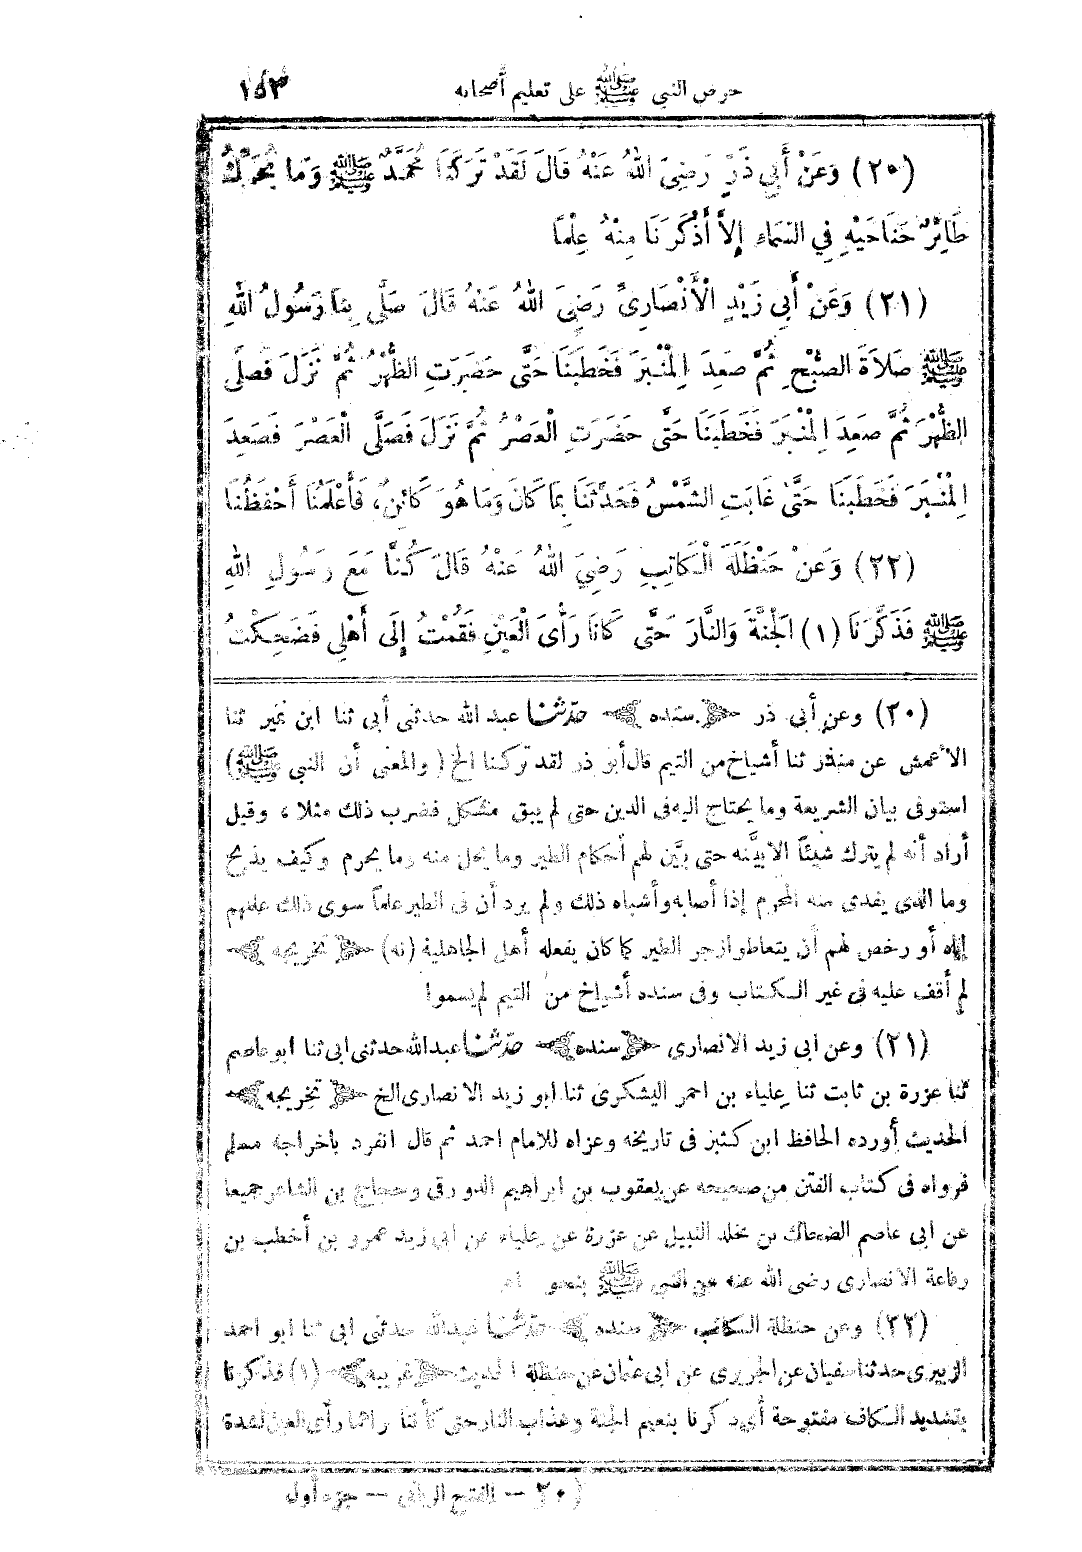 حرص النبي ﷺ على تعليم أصحابه ١٥٣
(٢٠) وَعَنْ أَبِي ذَرٍّ رَضِيَ اللهُ عَنْهُ قَالَ لَقَدْ تَرَكَنَا مُحَمَّدٌ ﷺ وَمَا يُحَرِّكُ
طَائِرٌ جَنَاحَيْهِ فِي السَّمَاءِ إِلاَّ أَذْكَرَنَا مِنْهُ عِلْمًا
(٢١) وَعَنْ أَبِي زَيْدٍ الْأَنْصَارِيِّ رَضِيَ اللهُ عَنْهُ قَالَ صَلَّى بِنَا رَسُولُ اللهِ
ﷺ صَلاَةَ الصُّبْحِ ثُمَّ صَعِدَ الْمِنْبَرَ فَخَطَبَنَا حَتَّى حَضَرَتِ الظُّهْرُ ثُمَّ نَزَلَ فَصَلَّى
الظُّهْرَ ثُمَّ صَعِدَ الْمِنْبَرَ فَخَطَبَنَا حَتَّى حَضَرَتِ الْعَصْرُ ثُمَّ نَزَلَ فَصَلَّى الْعَصْرَ فَصَعِدَ
الْمِنْبَرَ فَخَطَبَنَا حَتَّى غَابَتِ الشَّمْسُ فَحَدَّثَنَا بِمَا كَانَ وَمَا هُوَ كَائِنٌ، فَأَعْلَمُنَا أَحْفَظُنَا
(٢٢) وَعَنْ حَنْظَلَةَ الْكَاتِبِ رَضِيَ اللهُ عَنْهُ قَالَ كُنَّا مَعَ رَسُولِ اللهِ
ﷺ فَذَكَّرَنَا (١) الْجَنَّةَ وَالنَّارَ حَتَّى كَانَا رَأْىَ الْعَيْنِ فَقُمْتُ إِلَى أَهْلِي فَضَحِكْتُ
(٢٠) وعن أبى ذر ﴿سنده﴾ حدّثنا عبد الله حدثنى أبى ثنا ابن نمير ثنا
الأعمش عن منذر ثنا أشياخ من التيم قال أبو ذر لقد تركنا الخ (والمعنى أن النبي ﷺ)
استوفى بيان الشريعة وما يحتاج اليه فى الدين حتى لم يبق مشكل فضرب ذلك مثلا، وقيل
أراد أنه لم يترك شيئاً الا بيَّنه حتى بيَّن لهم أحكام الطير وما يحل منه وما يحرم وكيف يذبح
وما الذى يفدى منه المحرم إذا أصابه وأشباه ذلك ولم يرد أن فى الطير علماً سوى ذلك علمهم
إياه أو رخص لهم أن يتعاطوا زجر الطير كما كان يفعله أهل الجاهلية (نه) ﴿تخريجه﴾
لم أقف عليه فى غير الكتاب وفى سنده أشياخ من التيم لم يسموا
(٢١) وعن ابى زيد الانصارى ﴿سنده﴾ حدّثنا عبد الله حدثنى ابى ثنا ابو عاصم
ثنا عزرة بن ثابت ثنا علباء بن احمر اليشكرى ثنا ابو زيد الانصارى الخ ﴿تخريجه﴾
الحديث أورده الحافظ ابن كثير فى تاريخه وعزاه للامام احمد ثم قال انفرد باخراجه مسلم
فرواه فى كتاب الفتن من صحيحه عن يعقوب بن ابراهيم الدورقى وحجاج بن الشاعر جميعا
عن ابى عاصم الضحاك بن مخلد النبيل عن عزرة عن علباء عن ابى زيد عمرو بن أخطب بن
رفاعة الانصارى رضى الله عنه عن النبى ﷺ بنحوه اه
(٢٢) وعن حنظلة الكاتب ﴿سنده﴾ حدّثنا عبد الله حدثنى ابى ثنا ابو احمد
الزبيرى حدثنا سفيان عن الجريرى عن ابى عثمان عن حنظلة الحديث ﴿غريبه﴾ (١) فذكرنا
بتشديد الكاف مفتوحة أى ذكرنا بنعيم الجنة وعذاب النار حتى كأننا راهما رأى العين لشدة
(٢٠ — الفتح الربانى — جزء أول